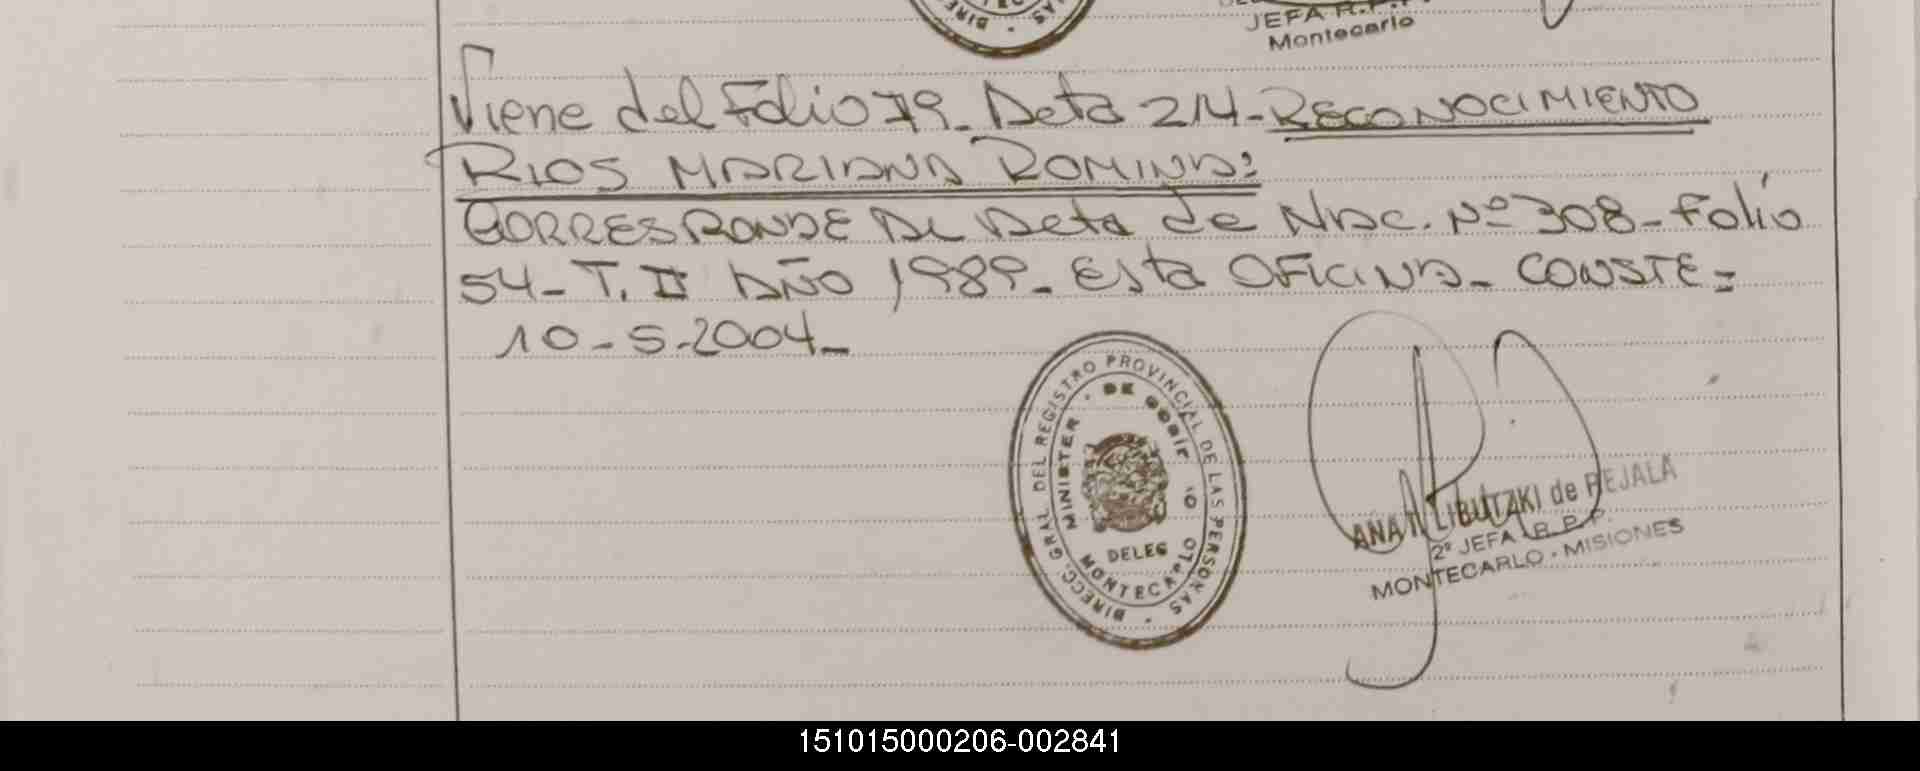 JEFA R.P.P.
Montecarlo
Viene del Folio 79_ Acta 214-RECONOCIMIENTO
RIOS MARIANA ROMINA:
CORRESPONDE AL Acta de NAC. Nº 308-Folio
54-T. II AÑO 1989_ Esta OFICINA_ CONSTE=
10-5-2004_
DIRECC. GRAL. DEL REGISTRO PROVINCIAL DE LAS PERSONAS
MINISTER . DE GOBIE
DELEG
MONTECARLO
ANA LIBUTZKI de PEJALA
2º JEFA R.P.P.
MONTECARLO - MISIONES
151015000206-002841